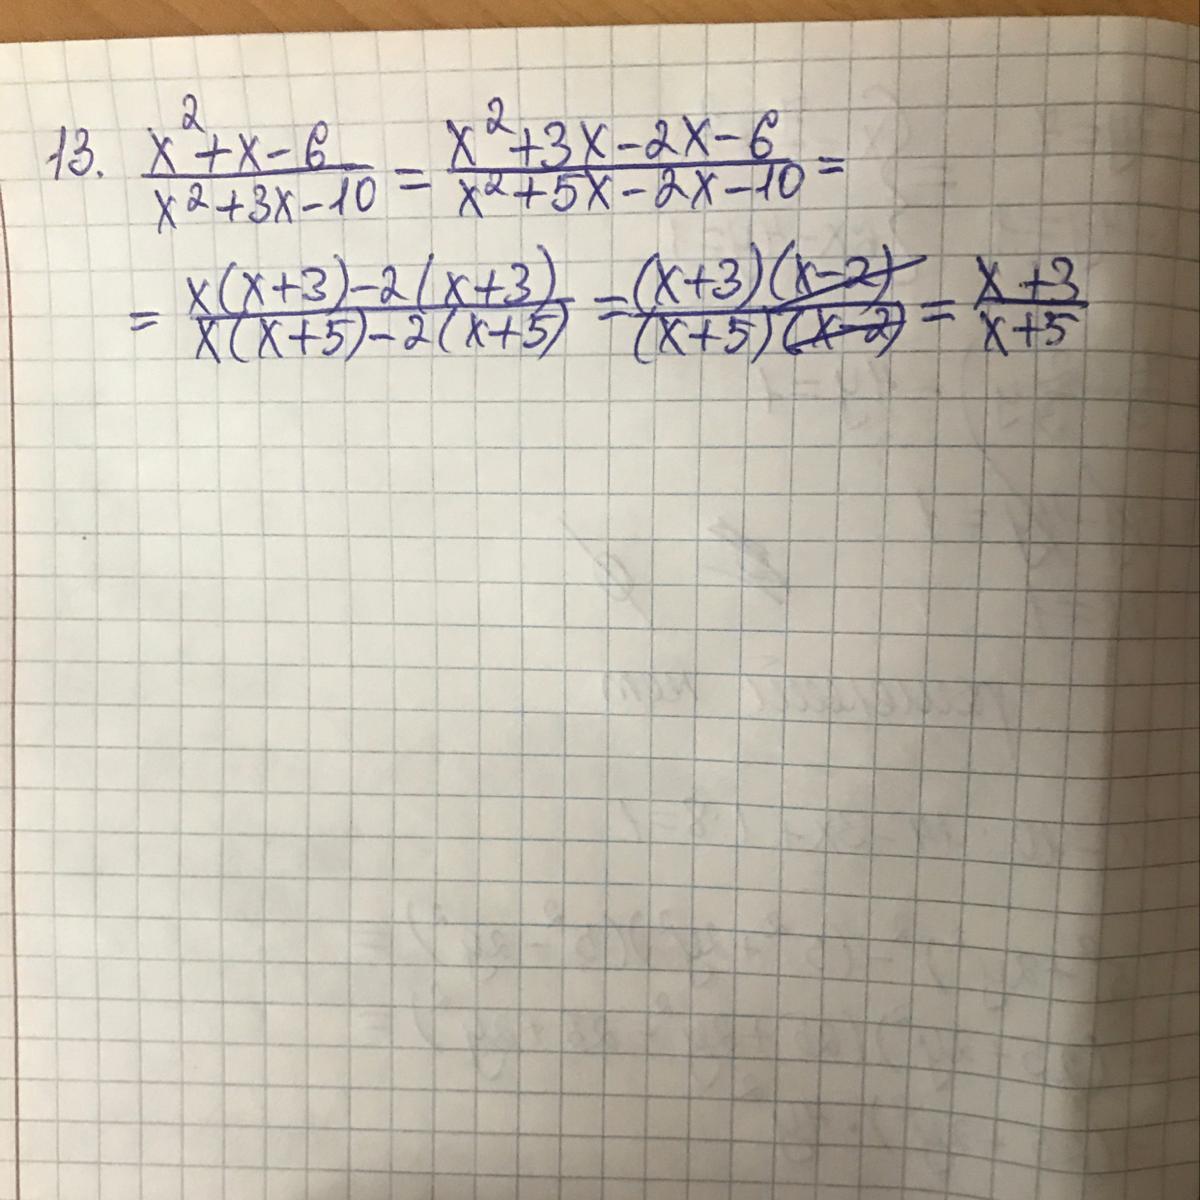 13. (x²+x-6)/(x²+3x-10) = (x²+3x-2x-6)/(x²+5x-2x-10) =
= (x(x+3)-2(x+3))/(x(x+5)-2(x+5)) = ((x+3)(x-2))/((x+5)(x-2)) = (x+3)/(x+5)